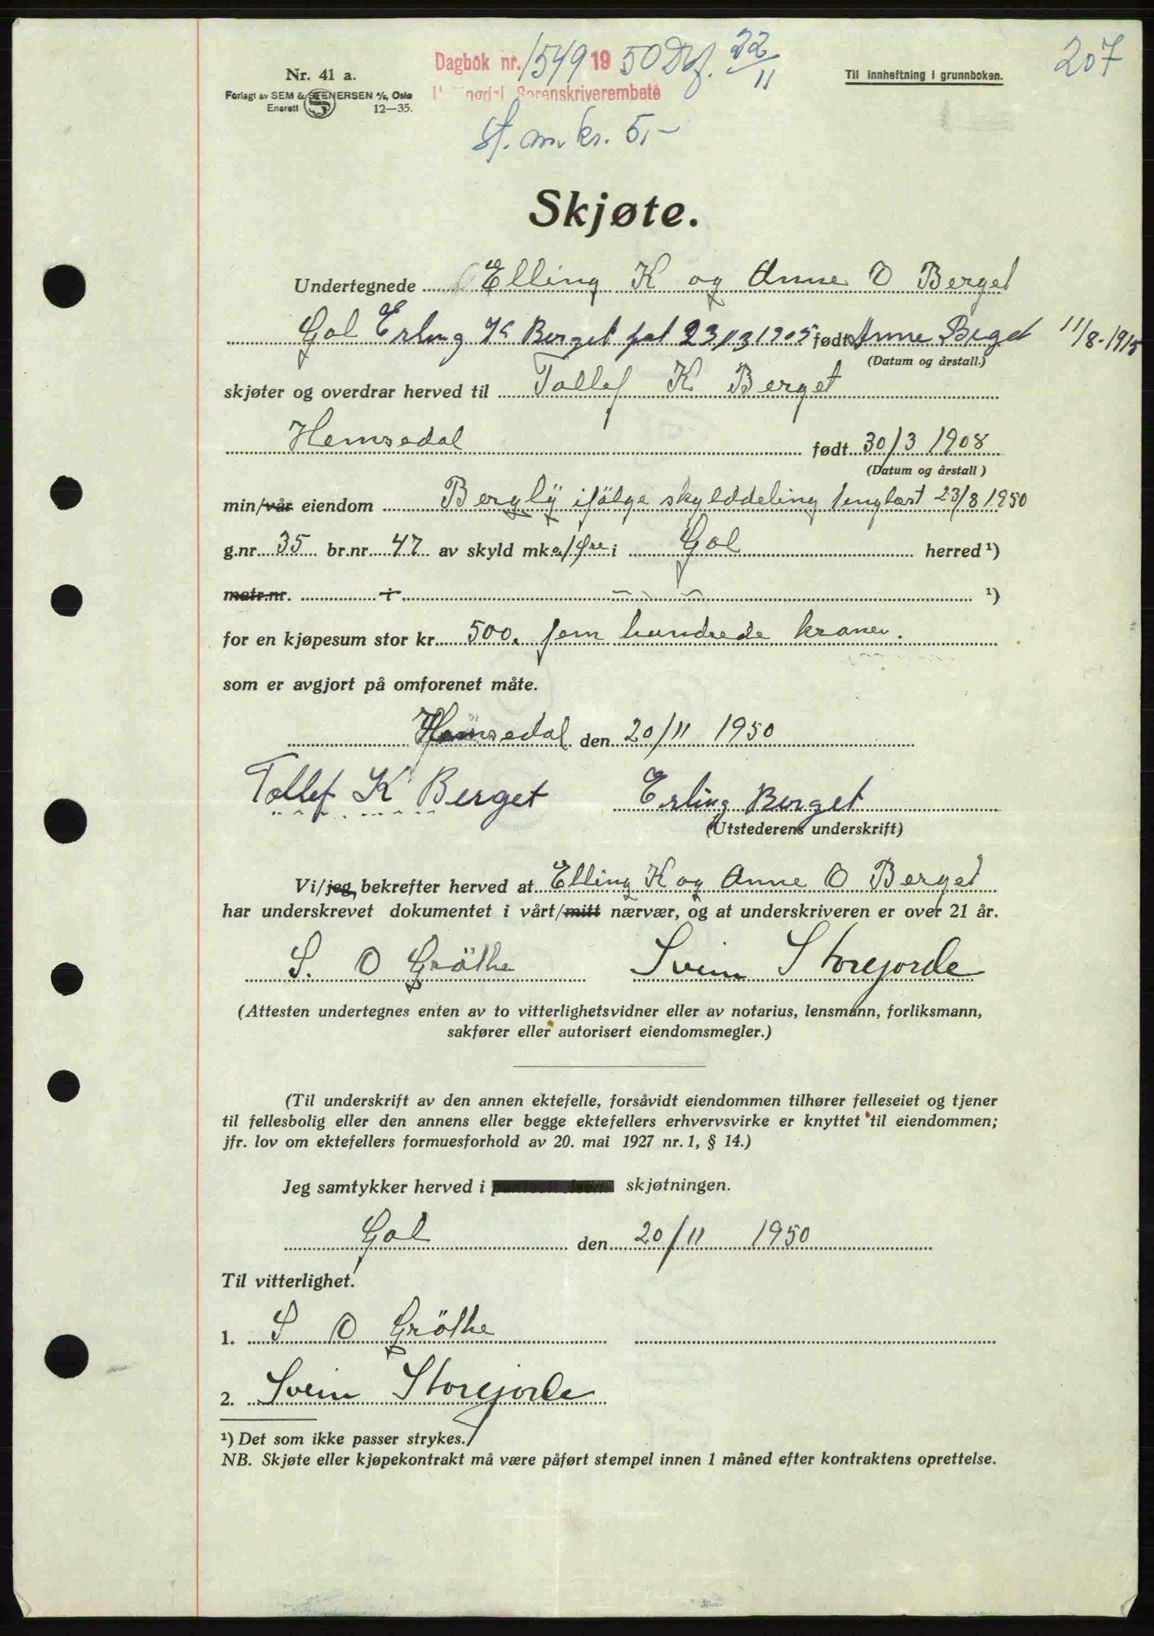 Nr. 41 a.
Forlagt av SEM & STENERSEN A/S, Oslo
Enerett 12—35.
Dagbok nr. 1549 1950 22/11
Sorenskriverembete
st. m. kr. 5,-
Til innheftning i grunnboken.
207
Skjøte.
Undertegnede Elling K og Anne O Berget
Gol Erling K Berget føt 23/3 1905 født Anne Berget 11/8-1915
(Datum og årstall.)
skjøter og overdrar herved til Tollef K Berget
Hemsedal født 30/3 1908
(Datum og årstall)
min/vår eiendom Bergly ifölge skylddeling tinglæst 23/8 1950
g.nr. 35 br.nr. 47 av skyld mk. i Gol herred ¹)
matr.nr. i ¹)
for en kjøpesum stor kr. 500. fem hundrede kroner.
som er avgjort på omforenet måte.
Hemsedal den 20/11 1950
Tollef K Berget Erling Berget
(Utstederens underskrift)
Vi/jeg bekrefter herved at Elling K og Anne O Berget
har underskrevet dokumentet i vårt/mitt nærvær, og at underskriveren er over 21 år.
S. O Gröthe Svein Storejorde
(Attesten undertegnes enten av to vitterlighetsvidner eller av notarius, lensmann, forliksmann,
sakfører eller autorisert eiendomsmegler.)
(Til underskrift av den annen ektefelle, forsåvidt eiendommen tilhører felleseiet og tjener
til fellesbolig eller den annens eller begge ektefellers erhvervsvirke er knyttet til eiendommen;
jfr. lov om ektefellers formuesforhold av 20. mai 1927 nr. 1, § 14.)
Jeg samtykker herved i skjøtningen.
Gol den 20/11 1950
Til vitterlighet.
1. S O Gröthe
2. Svein Storejorde
¹) Det som ikke passer strykes.
NB. Skjøte eller kjøpekontrakt må være påført stempel innen 1 måned efter kontraktens oprettelse.